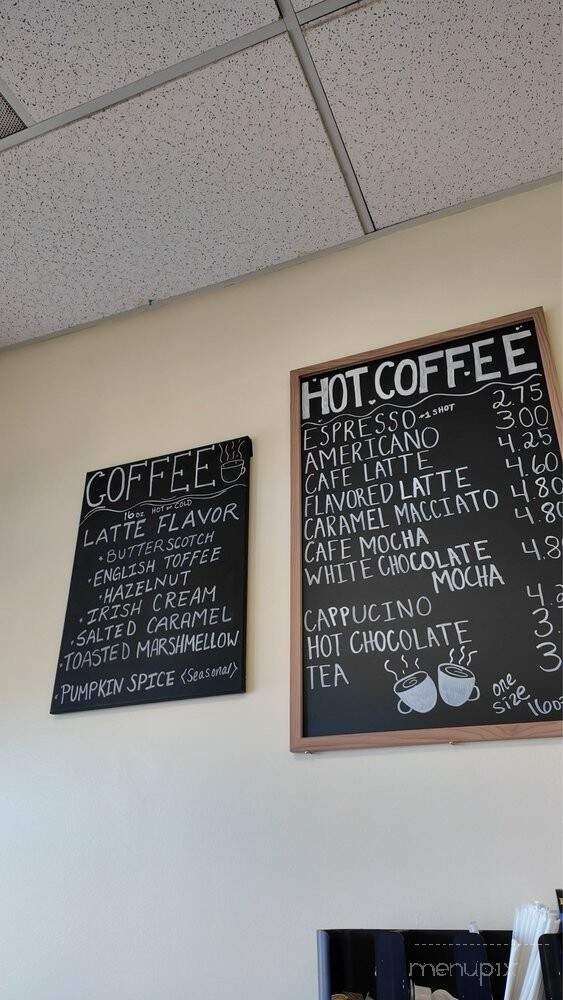 COFFEE
16oz HOT or COLD
LATTE FLAVOR
• BUTTERSCOTCH
• ENGLISH TOFFEE
• HAZELNUT
• IRISH CREAM
• SALTED CARAMEL
• TOASTED MARSHMELLOW
• PUMPKIN SPICE <Seasonal>
HOT COFFEE
ESPRESSO -1 SHOT 2.75
AMERICANO 3.00
CAFE LATTE 4.25
FLAVORED LATTE 4.60
CARAMEL MACCIATO 4.80
CAFE MOCHA 4.80
WHITE CHOCOLATE 4.8
MOCHA
CAPPUCINO 4.2
HOT CHOCOLATE 3.
TEA 3
one
size 16oz
menupix